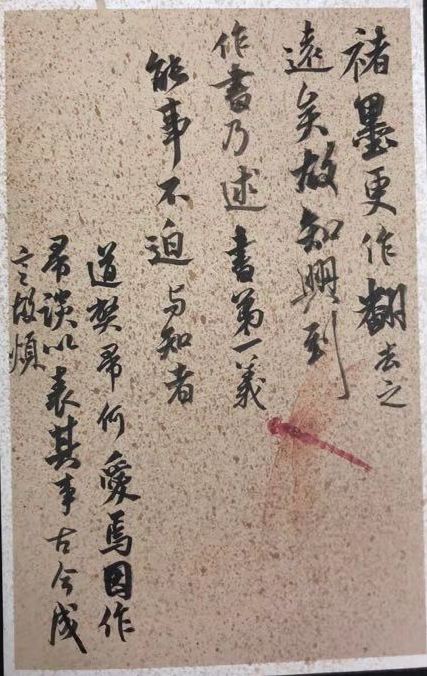 褚墨更作翻去之
遠矣故知興到
作書乃述書第一義
能事不迫与知者
道帚何愛焉因作
帚談以表其事古今成
言故煩